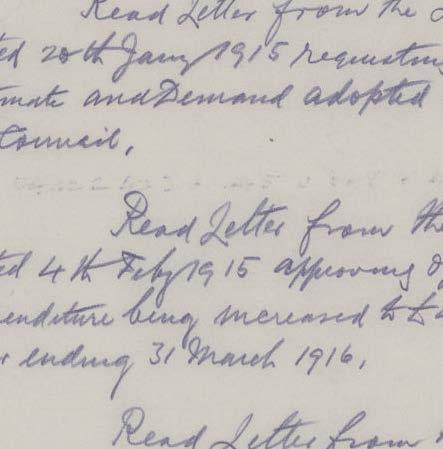 Read Letter from the
ted 20th Jany 1915 requesting
mate and Demand adopted
Council.
Read Letter from the
ted 4th Feby 1915 approving of
enditure being increased to
r ending 31 March 1916.
Read Letter from